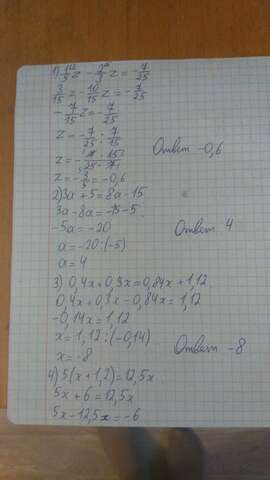 1) 1/5 z - 2/3 z = - 7/25
3/15 z - 10/15 z = - 7/25
- 7/15 z = - 7/25
z = - 7/25 : 7/15
z = - 7 · 15 / 25 · 7 Ответ -0,6
z = - 3/5 = -0,6
2) 3a + 5 = 8a - 15
3a - 8a = -15 - 5
-5a = -20 Ответ 4
a = -20 : (-5)
a = 4
3) 0,4x + 0,3x = 0,84x + 1,12
0,4x + 0,3x - 0,84x = 1,12
-0,14x = 1,12
x = 1,12 : (-0,14)
x = -8 Ответ -8
4) 5(x + 1,2) = 12,5x
5x + 6 = 12,5x
5x - 12,5x = -6